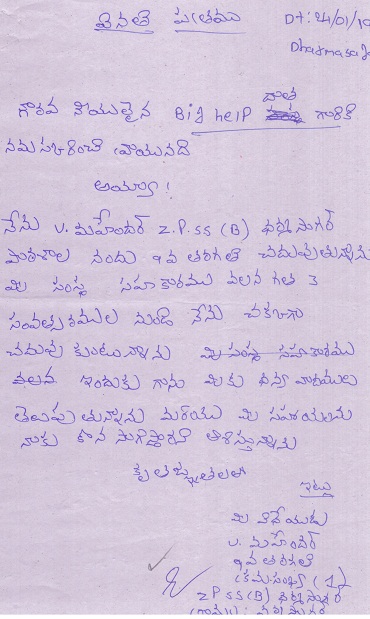 వినతి పత్రము Dt: 24/01/10
Dharmasag
గౌరవ నీయులైన Big help దాత గారికి
నమస్కరించి వ్రాయునది
అయ్యా!
నేను V. మహేందర్ Z.P.SS (B) ధర్మసాగర్
పాఠశాల నందు 9వ తరగతి చదువుతున్నాను
మీ సంస్థ సహకారము వలన గత 3
సంవత్సరముల నుండి నేను చక్కగా
చదువు కుంటున్నాను మీ సంస్థ సహకారము
వలన ఇందుకు గాను మీకు ధన్యవాదములు
తెలుపుతున్నాను మరియు మీ సహాయమును
నాకు కొన సాగిస్తారని ఆశిస్తున్నాను
కృతజ్ఞతలతో
ఇట్లు
మీ విధేయుడు
V. మహేందర్
9వ తరగతి
క్రమసంఖ్య (1)
Z P SS(B) ధర్మసాగర్
(గ్రామం): ధర్మసాగర్